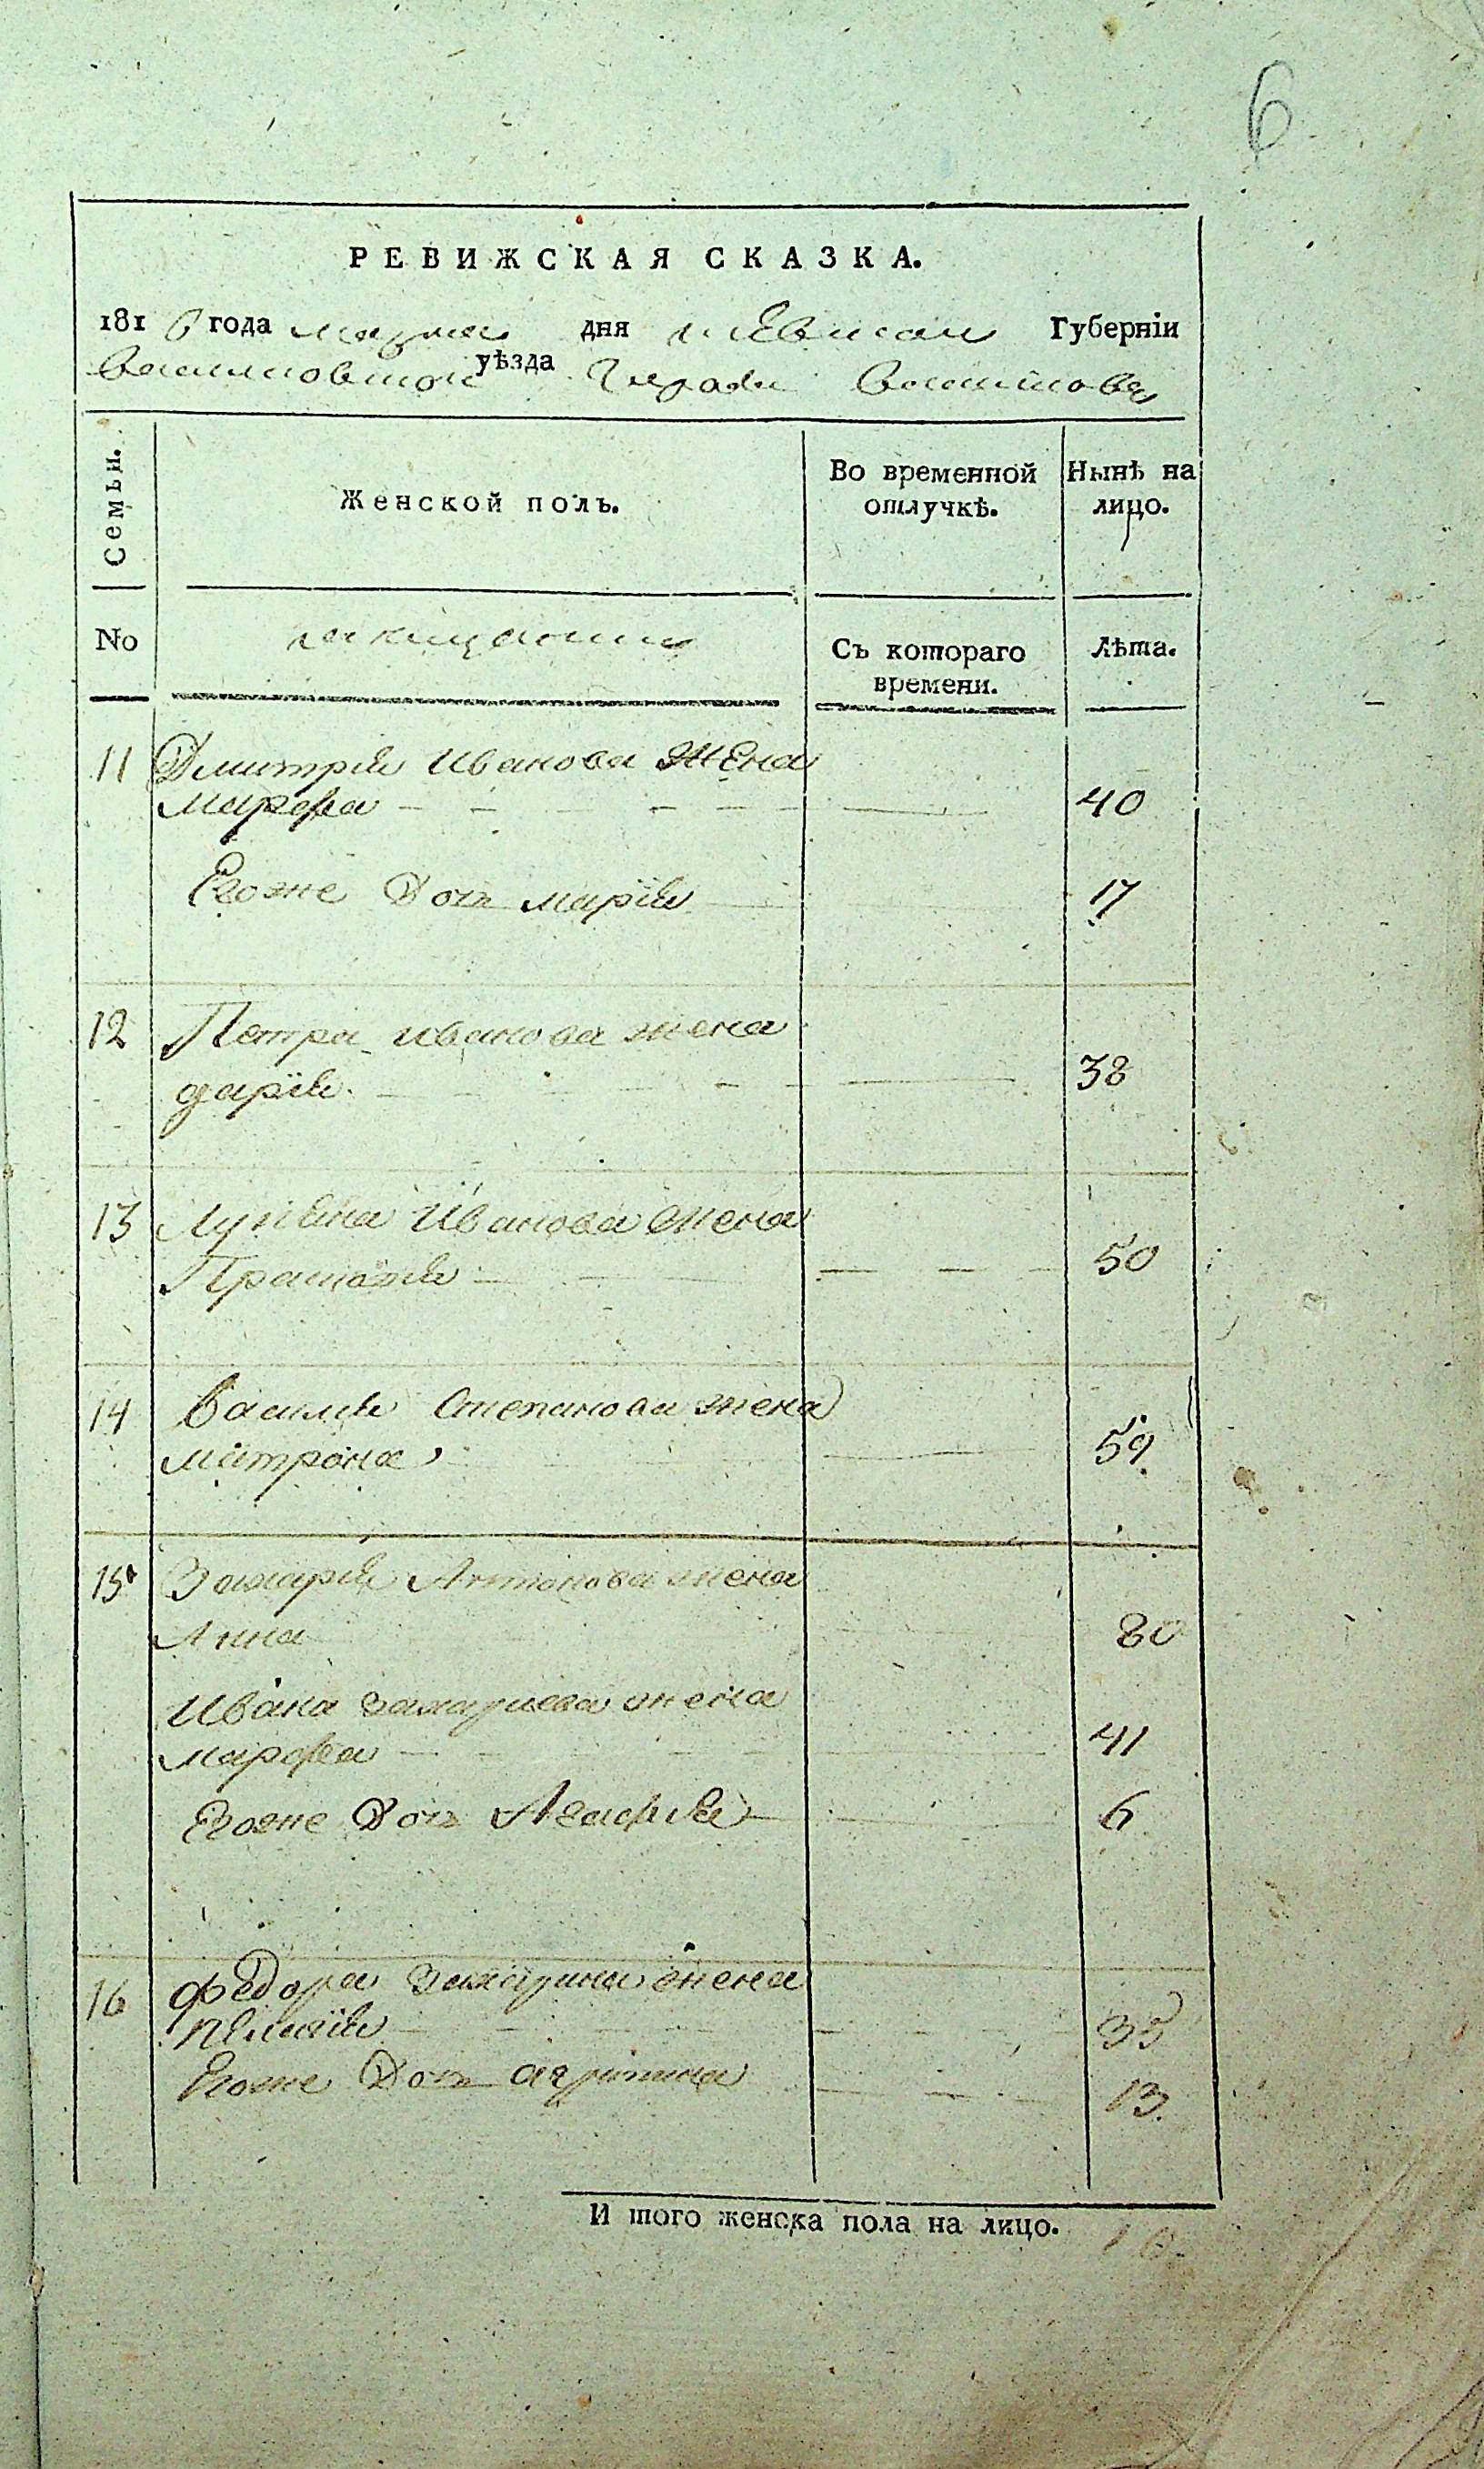 6
РЕВИЖСКАЯ СКАЗКА.
181 6 года марта дня Киевской Губерніи
Васильковской уѣзда города Василькова
Семьи. Женской полъ. Во временной отлучкѣ. Нынѣ на лицо.
No Съ котораго времени. лѣта.
11 Дмитрія Иванова жена
марфа 40
Егоже дочь марія 17
12 Петра иванова жена
дарія 38
13 Лукьяна Иванова жена
50
14 Василія Степанова жена
матрона 59
15 Захарія Антонова жена
Анна 80
Ивана захариева жена
марфа 41
Егоже дочь Агафия 6
16 федора жена
35
Егоже дочь 13
И того женска пола на лицо. 10